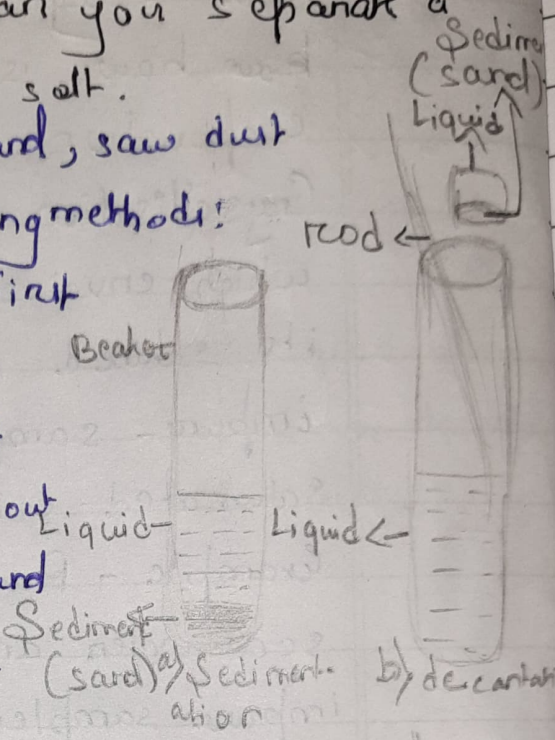 you separate a
salt.
saw dust
methods:
Sedime
(sand)
Liquid
rod
Beaker
out
Liquid
Liquid
Sediment
(sand)
a) Sediment-
ation
b) decantati